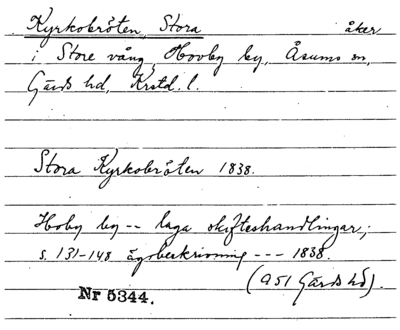 Kyrkobröten, Stora åker
i Store vång, Hovby by, Åsums sn,
Gärds hd, Krstd. l.
Stora Kyrkobröten 1838.
Hoby by -- laga skifteshandlingar;
s. 131-148 ägobeskrivning --- 1838.
(a 51 Gärds hd).
Nr 5344.